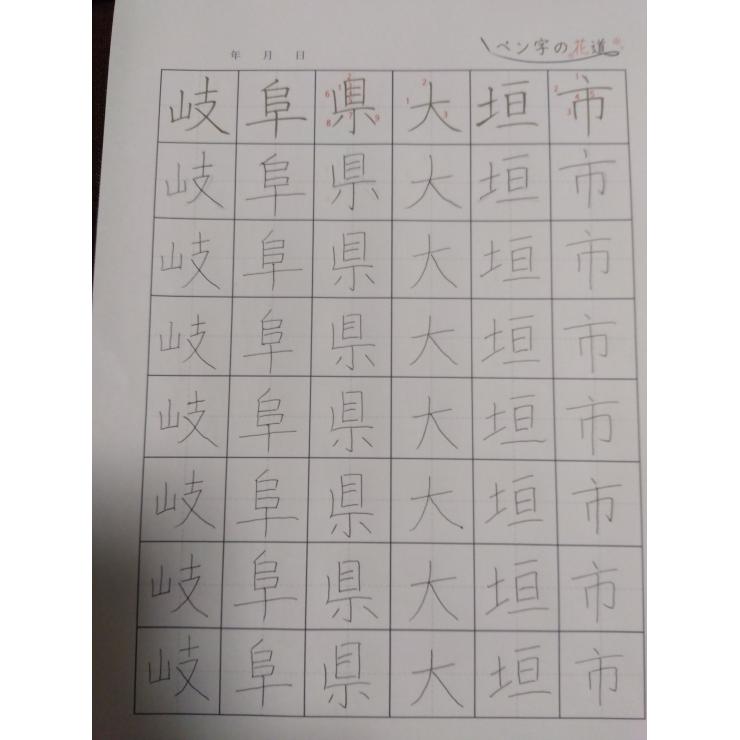 年 月 日
ペン字の花道
岐阜県大垣市
岐阜県大垣市
岐阜県大垣市
岐阜県大垣市
岐阜県大垣市
岐阜県大垣市
岐阜県大垣市
岐阜県大垣市